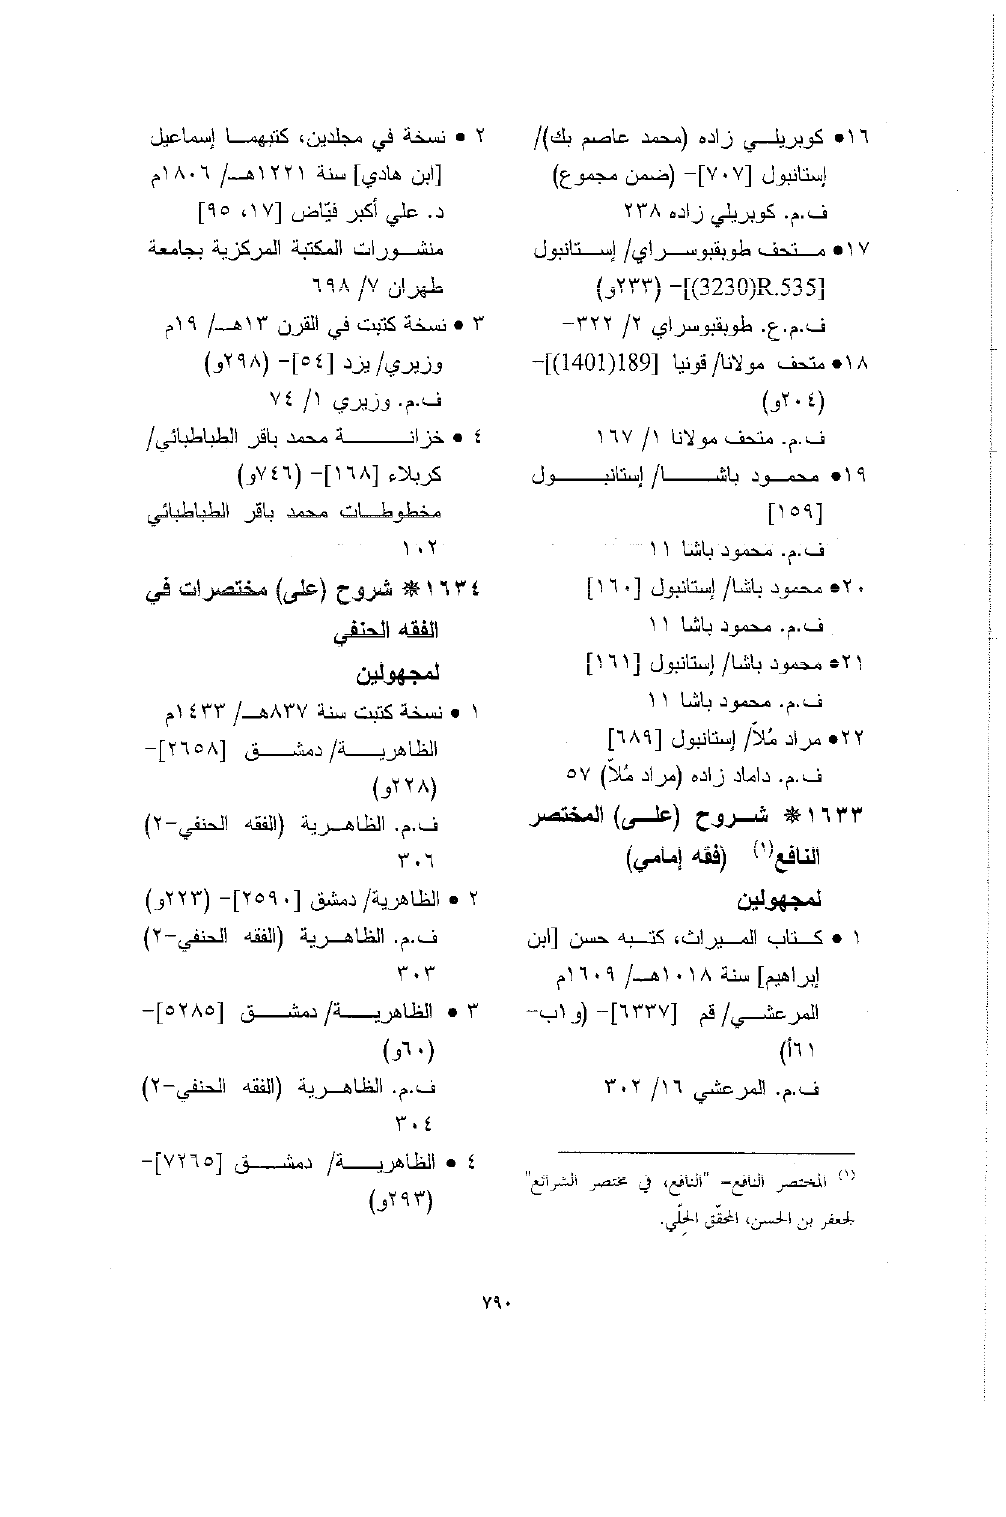 ١٦• كوبريلي زاده (محمد عاصم بك)/
إستانبول [٧٠٧]– (ضمن مجموع)
ف.م. كوبريلي زاده ٢٣٨
١٧• متحف طوبقبوسراي/ إستانبول
[R.535(3230)]– (٢٣٣و)
ف.م.ع. طوبقبوسراي ٢/ ٣٢٢–
١٨• متحف مولانا/ قونيا [189(1401)]–
(٢٠٤و)
ف.م. متحف مولانا ١/ ١٦٧
١٩• محمود باشا/ إستانبول
[١٥٩]
ف.م. محمود باشا ١١
٢٠• محمود باشا/ إستانبول [١٦٠]
ف.م. محمود باشا ١١
٢١• محمود باشا/ إستانبول [١٦١]
ف.م. محمود باشا ١١
٢٢• مراد مُلاّ/ إستانبول [٦٨٩]
ف.م. داماد زاده (مراد مُلاّ) ٥٧
١٦٣٣* شروح (على) المختصر
النافع(١) (فقه إمامي)
لمجهولين
١ • كتاب الميراث، كتبه حسن [ابن
إبراهيم] سنة ١٠١٨هـ/ ١٦٠٩م
المرعشي/ قم [٦٣٣٧]– (و١ب–
٦١أ)
ف.م. المرعشي ١٦/ ٣٠٢
(١) المختصر النافع= "النافع، في مختصر الشرائع"
لجعفر بن الحسن، المحقّق الحِلّي.
٢ • نسخة في مجلدين، كتبهما إسماعيل
[ابن هادي] سنة ١٢٢١هـ/ ١٨٠٦م
د. علي أكبر فيّاض [١٧، ٩٥]
منشورات المكتبة المركزية بجامعة
طهران ٧/ ٦٩٨
٣ • نسخة كتبت في القرن ١٣هـ/ ١٩م
وزيري/ يزد [٥٤]– (٢٩٨و)
ف.م. وزيري ١/ ٧٤
٤ • خزانة محمد باقر الطباطبائي/
كربلاء [١٦٨]– (٧٤٦و)
مخطوطات محمد باقر الطباطبائي
١٠٢
١٦٣٤* شروح (على) مختصرات في
الفقه الحنفي
لمجهولين
١ • نسخة كتبت سنة ٨٣٧هـ/ ١٤٣٣م
الظاهرية/ دمشق [٢٦٥٨]–
(٢٢٨و)
ف.م. الظاهرية (الفقه الحنفي–٢)
٣٠٦
٢ • الظاهرية/ دمشق [٢٥٩٠]– (٢٢٣و)
ف.م. الظاهرية (الفقه الحنفي–٢)
٣٠٣
٣ • الظاهرية/ دمشق [٥٢٨٥]–
(٦٠و)
ف.م. الظاهرية (الفقه الحنفي–٢)
٣٠٤
٤ • الظاهرية/ دمشق [٧٢٦٥]–
(٢٩٣و)
٧٩٠